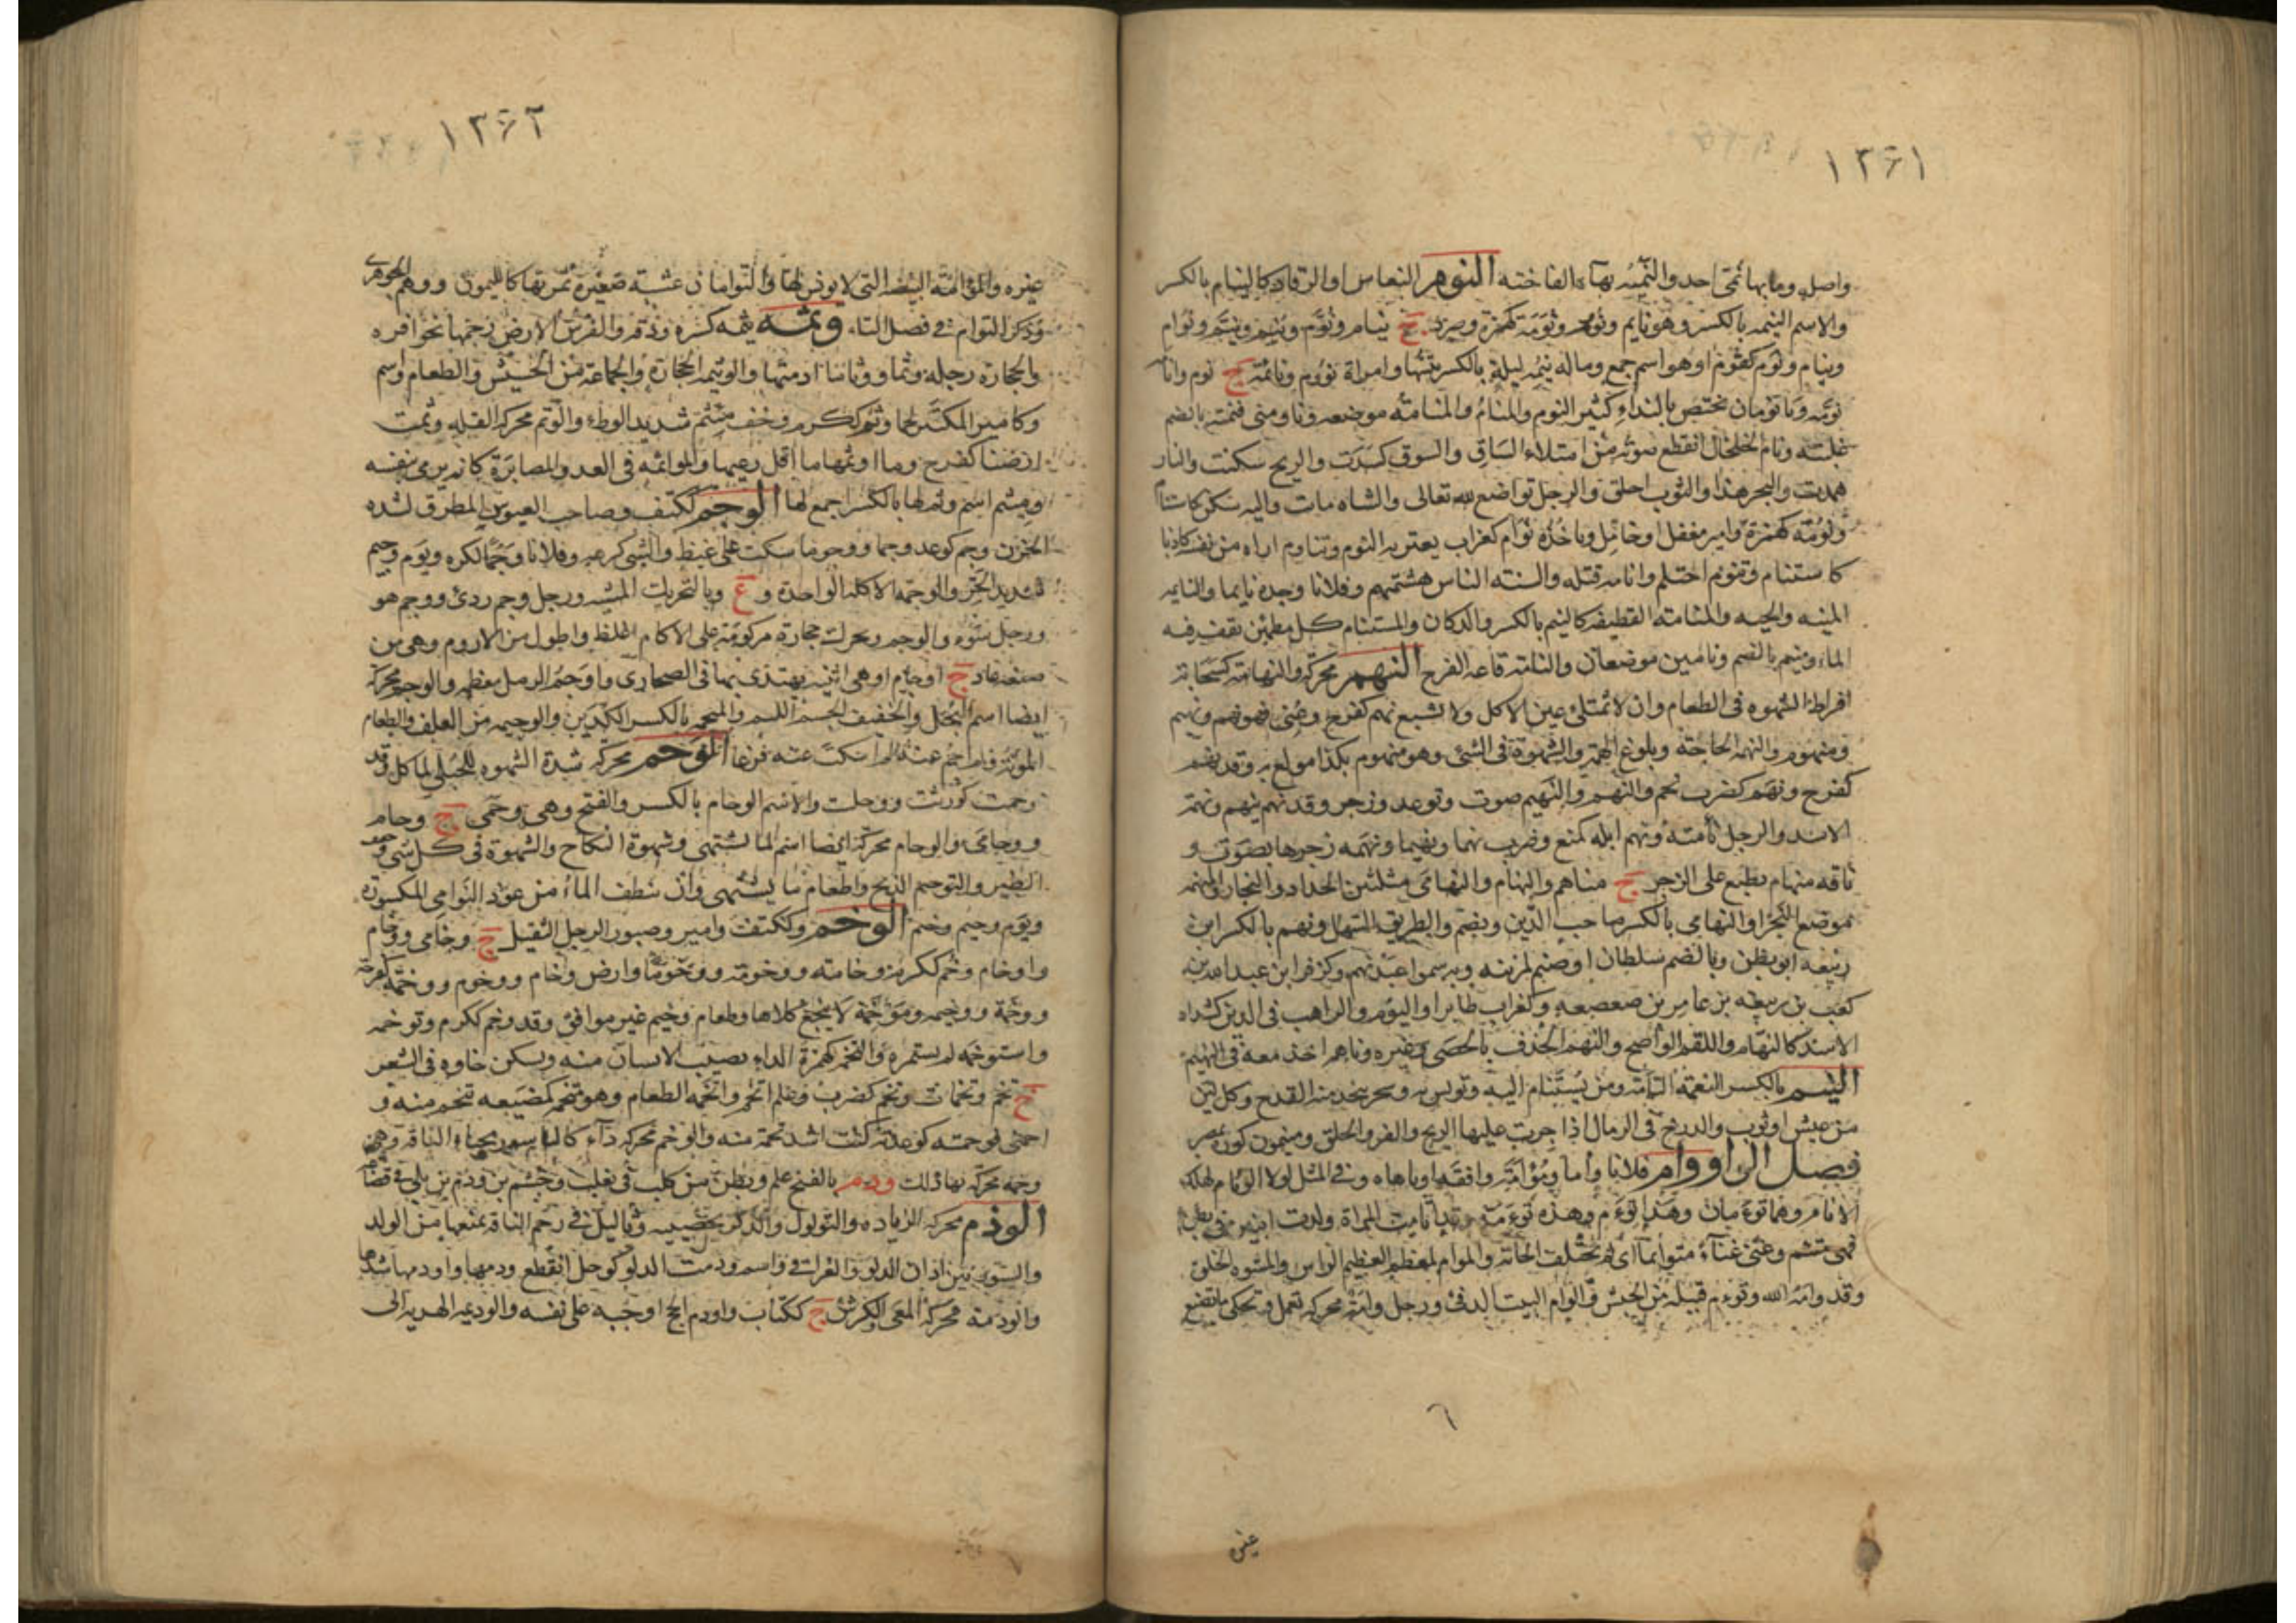 ١٣٦١
واصله وما بها نمى احد والنميه بهاء الفاخته النوم النعاس او الرقاد كالنيام بالكسر
والاسم النيمه بالكسر وهو نايم ونؤم ونومة كهمزة وصرد ج نيام ونوم ونيم ونيم ونوام
ونيام ونوم كقوم او هو اسم جمع وماله نيمه ليلة بالكسر يبيتها وامراة نؤوم ونائمة ج نوم وانا
نومه ويا نومان يختص بالنداء كثير النوم والمنام والمنامة موضعه وناومنى فنمته بالضم
غلبته ونام الخلخال انقطع صوته من امتلاء الساق والسوق كسدت والريح سكنت والنار
همدت والبحر هدا والثوب اخلق والرجل تواضع لله تعالى والشاة مات واليه سكن كاستنا
ونومة كهمزة وامير مغفل او خامل وياخذه نوام كغراب يعتريه النوم وتناوم اراه من نفسه كاذبا
كاستنام وتنوم احتلم وانامه قتله والسنه الناس هشمتهم وفلانا وجده نايما والنايمه
المنيه والحيه والمنامة القطيفه كالنيم بالكسر والدكان والمستنام كل مطمئن يقف فيه
الماء ومنيم بالضم ونامين موضعان والنامة قاعه الفرج النهم محركة والنهامة كسحابة
افراط الشهوه فى الطعام وان لا تمتلئ عين الاكل ولا يشبع نهم كفرح وعنى فهو نهم ونهيم
ومنهوم والنهمه الحاجة وبلوغ الهمة والشهوة فى الشئ وهو منهوم بكذا مولع به وقد نهم
كفرح ونهم كضرب نحم والنهم والنهيم صوت وتوعد وزجر وقد نهم ينهم ونهمة
الاسد والرجل نأمته ونهم ابله كمنع وضرب نهما ونهيما ونهمه زجرها بصوت و
ناقه منهام تطيع على الزجر ج مناهم والنهام والنهامى مثلثين الحداد والنجار والمنهمه
موضع النجر والنهامى بالكسر صاحب الدين ويضم والطريق السهل ونهم بالكسر ابن
ربيعه ابو بطن وبالضم شيطان او صنم لمزينه وبه سموا عبد نهم وكزفر ابن عبد الله بن
كعب بن ربيعه بن عامر بن صعصعه وكغراب طاير او البوم والراهب فى الدير كشداد
الاسد كالنهام واللقم الواضح والنهم الخذف بالحصى وغيره وناهم اخذ معه فى النهيم
النيم بالكسر النعمة التامة ومن يستنام اليه ويونس به وشجر يتخذ منه القدح وكل لين
من عيش او ثوب والدرج فى الرمال اذا جرت عليها الريح والفرو الخلق
فصل الواو وام فلانا وأما وموأمة وافقه او باهاه وفى المثل لولا الوئام لهلك
الانام وهما توءمان وهذا توءم وهذه توءمة
فهى متئم وغنى غناء متوائما اى لم تختلف الحانه والموام لمعظم العظيم الراس والمشوه الخلق
وقد وامه الله وتوءم قبيله من الحبش والوام البيت الدفئ ورجل وأمة محركة يعمل ويحكى ما يصنع
غيره
١٣٦٢
غيره والمؤامة البيضه التى لا قونس لها والتوامان عشبة صغيرة ثمرتها كالكمون ووهم الجوهرى
وذكر التوام فى فصل التاء وثمه يثمه كسره ودقه والفرس الارض رجمها بحوافره
والحجارة رجله وثما ووثاما ادمتها والوثيمه الحجارة والجماعة من الحشيش والطعام اوسم
وكامير المكتنز لحما وثم ككرم وخف ميثم شديد الوطء والوثم محركة القله وثمت
ارضنا كفرح وما اوثمها ما اقل رعيها والمواثمه فى العدو المصابرة كانه يرمى بنفسه
وميثم اسم وثم لها بالكسر اجمع لها الوجم ككتف وصاحب العبوس المطرق لشدة
الحزن وجم كوعد وجما ووجوما سكت على غيظ والشئ كرهه وفلانا وجما لكزه ويوم وجيم
شديد الحر والوجمة الاكله الواحدة و ع وبالتحريك المسبه ورجل وجم ردئ ووجم هو
ورجل سوء والوجم ويحرك حجارة مركومة على الاكام اغلظ واطول من الاروم وهى من
صنعه عاد ج اوجام او هى ابنيه يهتدى بها فى الصحارى واوجم الرمل معظمه والوجم محركة
ايضا اسم البخل والخفيف الجسم اللئيم والميجم بالكسر الكذين والوجيمه من العلف والطعام
المونه الوحم محركه شدة الشهوه للحبلى لماكل وقد
وحمت كورثت ووجلت والاسم الوحام بالكسر والفتح وهى وحمى ج وحام
ووحامى والوحام محركة ايضا اسم لما تشتهى وشهوة النكاح والشهوة فى كل شئ
الطير والتوحيم الذبح واطعام ما يشتهى وان ينطف الماء من عود النوامى المكسوره
ويوم وحيم وخم الوخم وككتف وامير وصبور الرجل الثقيل ج وخامى ووخام
واوخام وخم ككرم وخامة ووخومة ووخوما وارض وخام ووخوم ووخمة كفرحة
ووخمة ووخيمه وموخمة لا ينجع كلاها وطعام وخيم غير موافق وقد وخم ككرم وتوخمه
واستوخمه لم يستمره والتخمة كهمزة الداء يصيب الانسان منه ويسكن خاوه فى الشعر
ج تخم وتخمات وتخم كضرب وعلم اتخم واتخمه الطعام وهو متخمة كمضيعه تتخم منه و
اخمنى فوخمته كوعدته كنت اشد تخمة منه والوخم محركة داء كالباسور بحياء الناقة وهى
وخمه محركة بها ذلك ودم بالفتح علم وبطن من كلب فى تغلب وجشم بن ودم بن بلى فى قضاعه
الوذم محركه الزياده والثولول والذكر بخصييه وثآليل فى رحم الناقه تمنعها من الولد
والسيور بين اذان الدلو والعراقى واسم وذمت الدلو كوجل انقطع وذمها واوذمها شدها
والوذمة محركة المعى والكرش ج ككتاب واوذم الحج اوجبه على نفسه والوذيمه الهديه الى